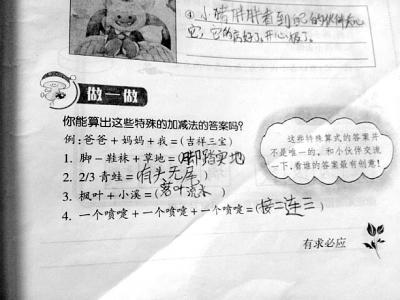 ④小猪胖胖看到自己的伙伴关心
它,它的病好了,开心极了。
做一做
你能算出这些特殊的加减法的答案吗?
例:爸爸+妈妈+我=(吉祥三宝)
1. 脚-鞋袜+草地=(脚踏实地)
2. 2/3 青蛙=(有头无尾)
3. 枫叶+小溪=(落叶流水)
4. 一个喷嚏+一个喷嚏+一个喷嚏=(接二连三)
这些特殊算式的答案并
不是唯一的。和小伙伴交流
一下,看谁的答案最有创意!
有求必应